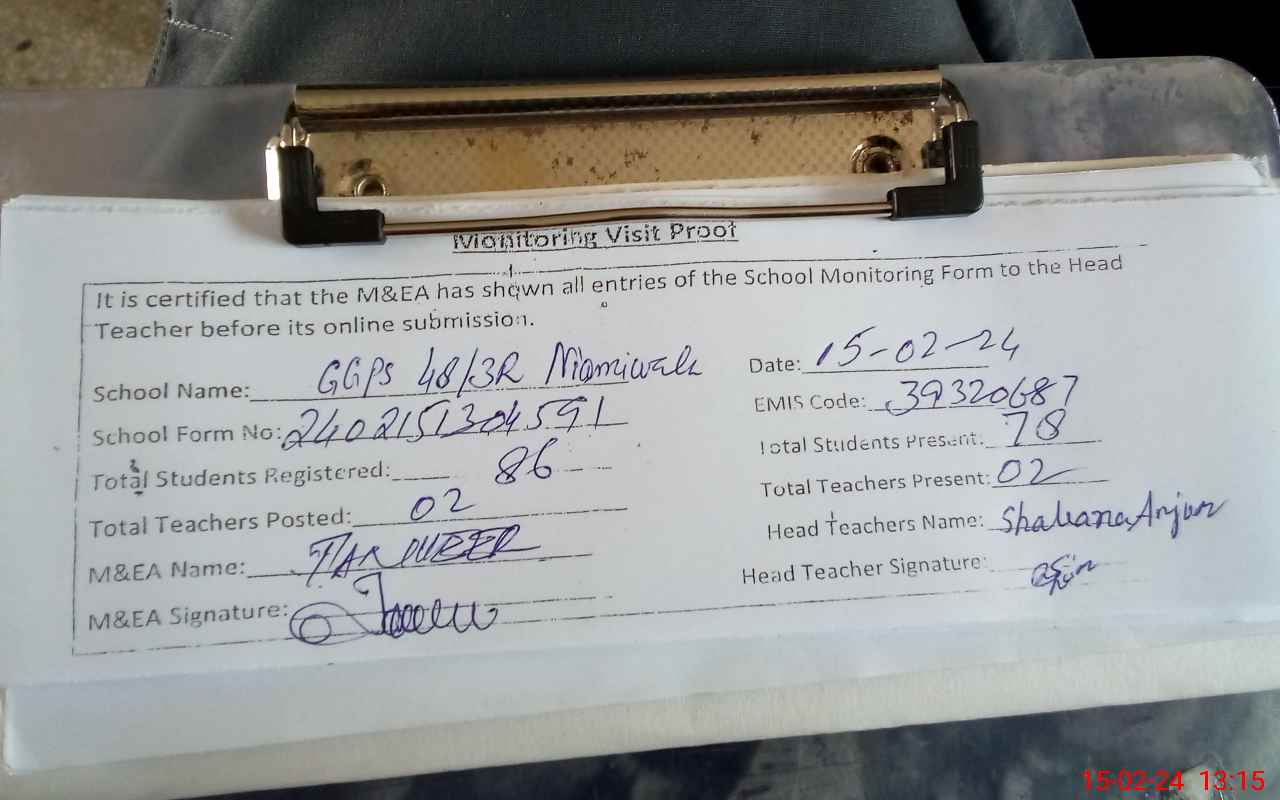 Monitoring Visit Proof
It is certified that the M&EA has shown all entries of the School Monitoring Form to the Head
Teacher before its online submission.
School Name: GGPS 48/3R Niamiwala
Date: 15-02-24
School Form No: 2402151304591
EMIS Code: 39320687
Total Students Registered: 86
Total Students Present: 78
Total Teachers Posted: 02
Total Teachers Present: 02
M&EA Name: TANVEER
Head Teachers Name: Shabana Anjum
M&EA Signature:
Head Teacher Signature:
15-02-24 13:15